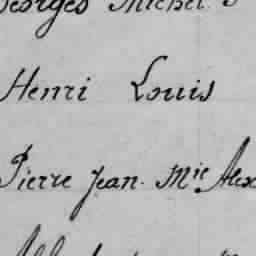 Georges Michel
Henri Louis
Pierre Jean. Mie Alex